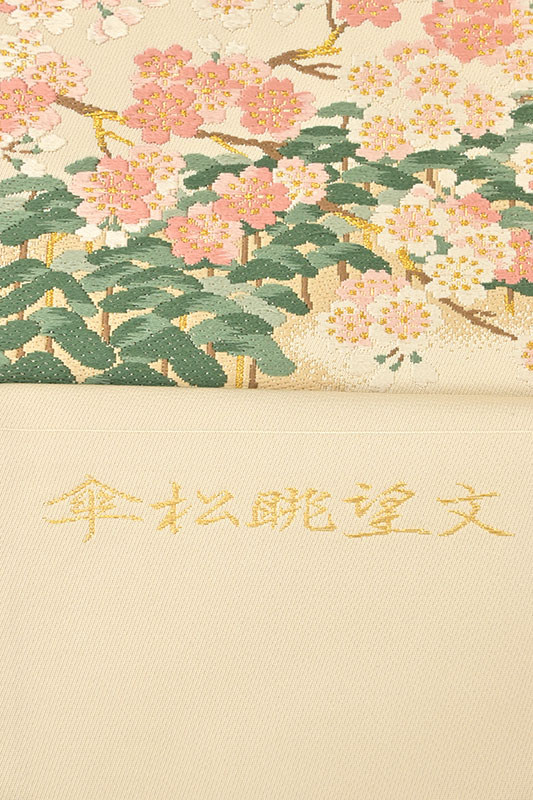 傘松眺望文